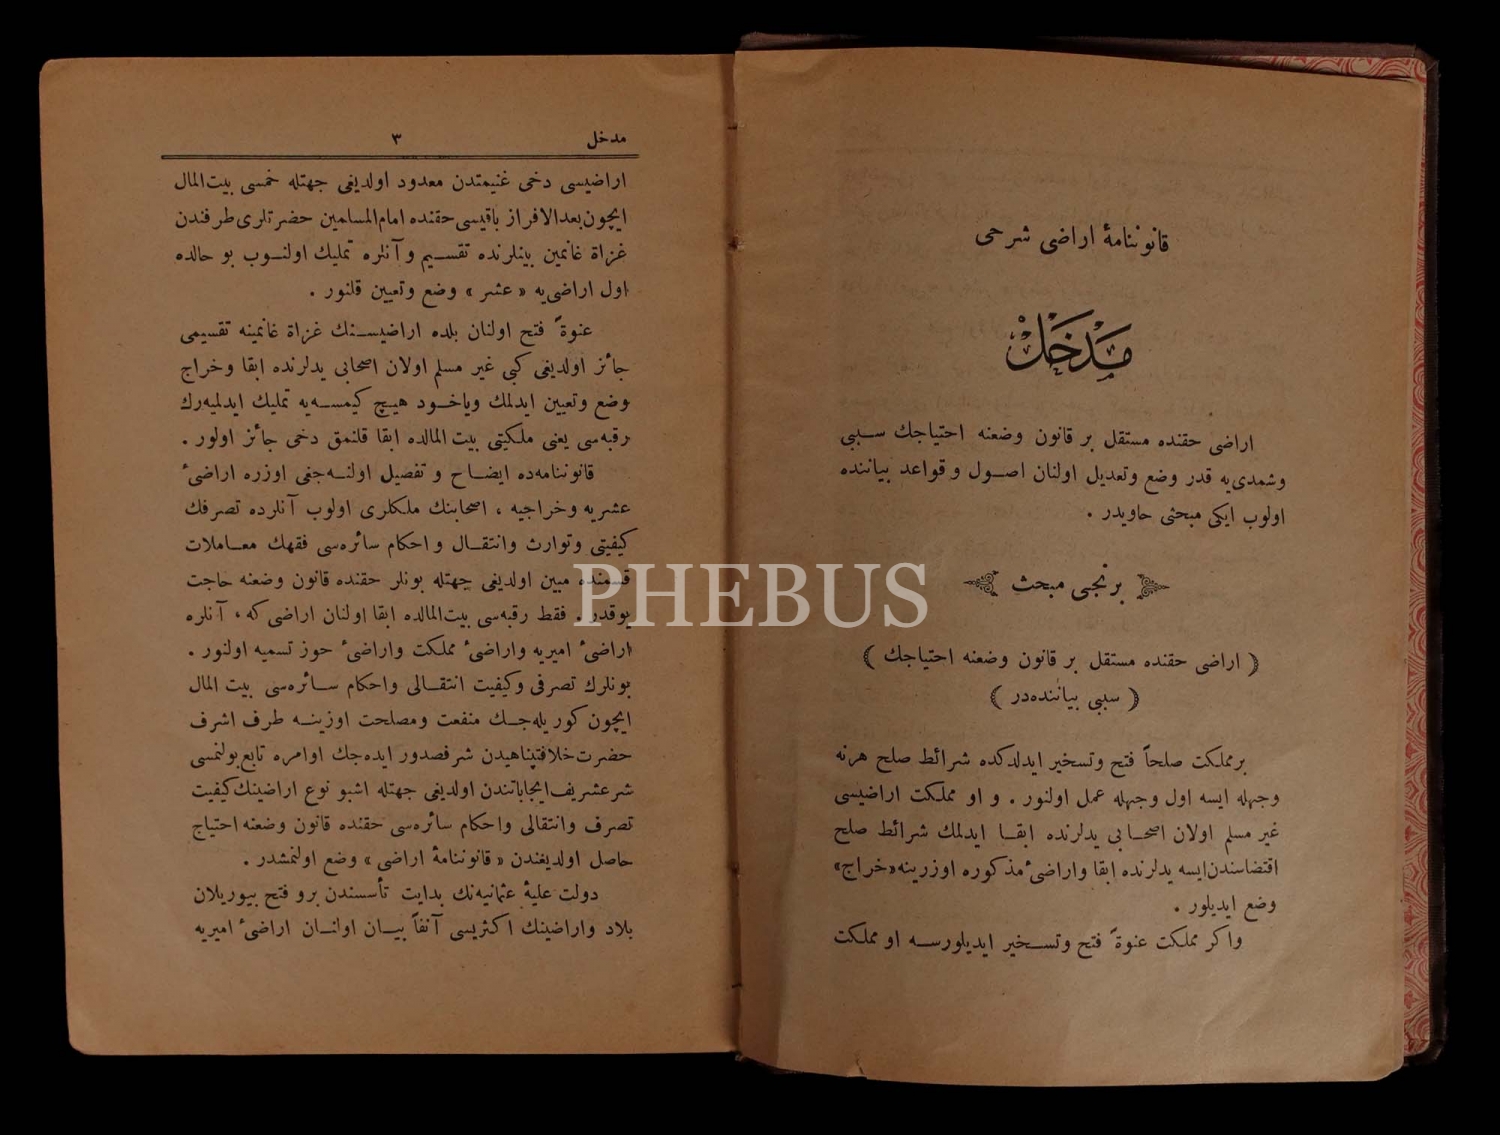 قانوننامهٔ اراضی شرحی
مَدْخَلْ
اراضی حقنده مستقل بر قانون وضعنه احتیاجك سببی
وشمدی‌یه قدر وضع وتعدیل اولنان اصول و قواعد بیاننده
اولوب ایکی مبحثی حاویدر .
برنجی مبحث
( اراضی حقنده مستقل بر قانون وضعنه احتیاجك )
( سببی بیاننده‌در )
برمملکت صلحاً فتح وتسخیر ایدلدکده شرائط صلح هرنه
وجهله ایسه اول وجهله عمل اولنور . و او مملکت اراضیسی
غیر مسلم اولان اصحابی یدلرنده ابقا ایدلمك شرائط صلح
اقتضاسندن‌ایسه یدلرنده ابقا واراضیٔ مذکوره اوزرینه «خراج»
وضع ایدیلور .
واکر مملکت عنوةً فتح وتسخیر ایدیلورسه او مملکت
مدخل ٣
اراضیسی دخی غنیمتدن معدود اولدیغی جهتله خمسی بیت‌المال
ایچون بعدالافراز باقیسی حقنده امام‌المسلمین حضرتلری طرفندن
غزاة غانمین بینلرنده تقسیم و آنلره تملیك اولنوب بو حالده
اول اراضی‌یه « عشر » وضع وتعیین قلنور .
عنوةً فتح اولنان بلده اراضیسنك غزاة غانمینه تقسیمی
جائز اولدیغی کبی غیر مسلم اولان اصحابی یدلرنده ابقا وخراج
وضع وتعیین ایدلمك ویاخود هیچ کیمسه‌یه تملیك ایدلمیه‌رك
رقبه‌سی یعنی ملکیتی بیت المالده ابقا قلنمق دخی جائز اولور .
قانوننامه‌ده ایضاح و تفصیل اولنه‌جغی اوزره اراضیٔ
عشریه وخراجیه ، اصحابنك ملکلری اولوب آنلرده تصرفك
کیفیتی وتوارث وانتقال و احکام سائره‌سی فقهك معاملات
قسمنده مبین اولدیغی جهتله بونلر حقنده قانون وضعنه حاجت
یوقدر . فقط رقبه‌سی بیت‌المالده ابقا اولنان اراضی که ، آنلره
اراضیٔ امیریه واراضیٔ مملکت واراضیٔ حوز تسمیه اولنور .
بونلرك تصرفی وکیفیت انتقالی واحکام سائره‌سی بیت المال
ایچون کوریله‌جك منفعت ومصلحت اوزینه طرف اشرف
حضرت خلافتپناهیدن شرفصدور ایده‌جك اوامره تابع بولنمسی
شرعشریف ایجاباتندن اولدیغی جهتله اشبو نوع اراضینك کیفیت
تصرف وانتقالی واحکام سائره‌سی حقنده قانون وضعنه احتیاج
حاصل اولدیغندن « قانوننامهٔ اراضی » وضع اولنمشدر .
دولت علیهٔ عثمانیه‌نك بدایت تأسسندن برو فتح بیوریلان
بلاد واراضینك اکثریسی آنفاً بیان اولنان اراضیٔ امیریه
PHEBUS